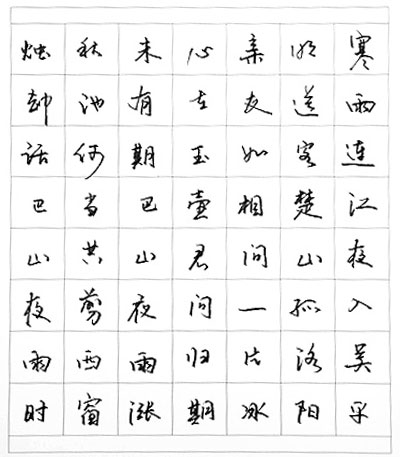 寒雨连江夜入吴平
明送客楚山孤洛阳
亲友如相问一片冰
心在玉壶君问归期
未有期巴山夜雨涨
秋池何当共剪西窗
烛却话巴山夜雨时